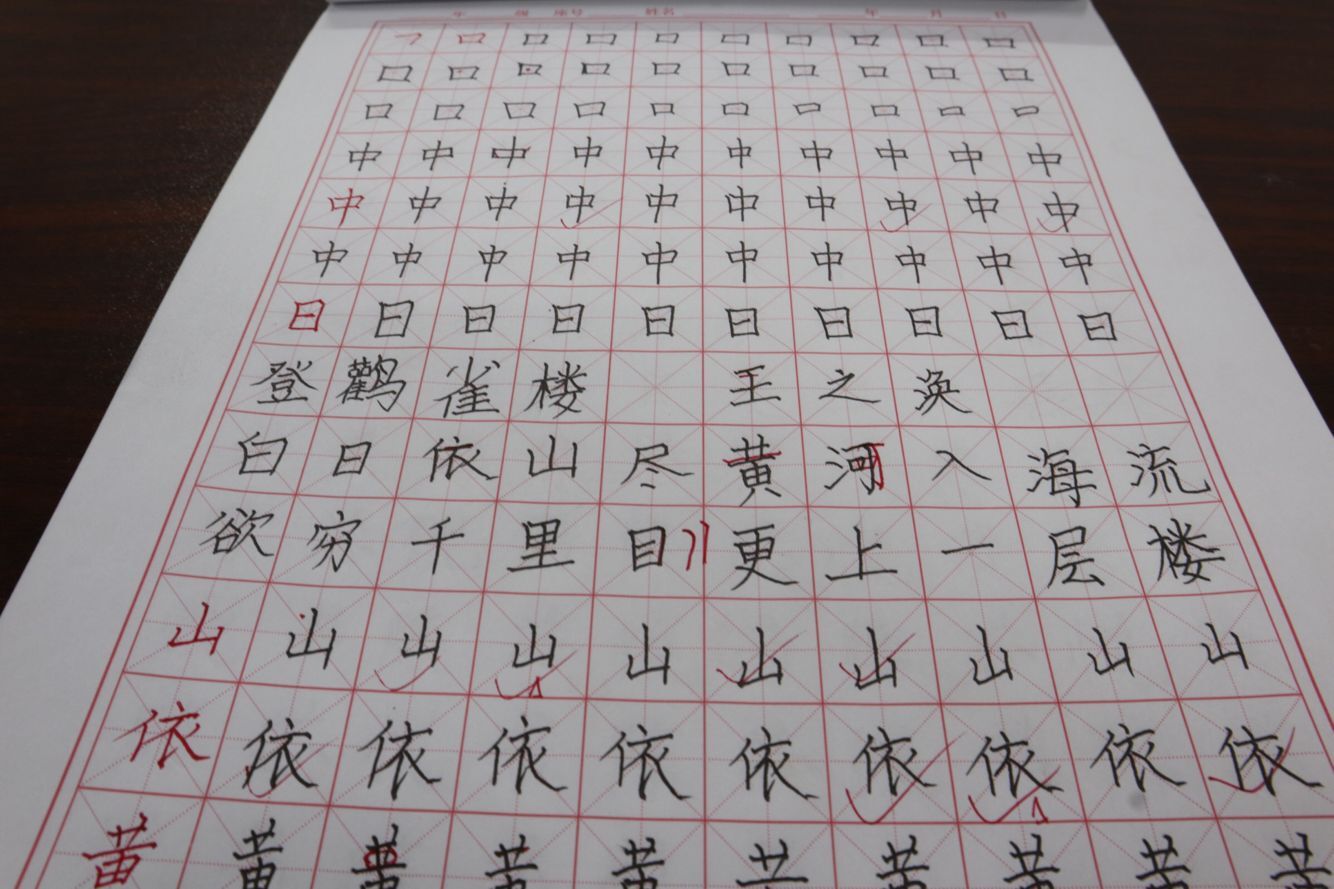 年 级 座号 姓名 年 月 日
㇕ 口 口 口 口 口 口 口 口 口
口 口 口 口 口 口 口 口 口 口
口 口 口 口 口 口 口 口 口 口
中 中 中 中 中 中 中 中 中 中
中 中 中 中 中 中 中 中 中 中
中 中 中 中 中 中 中 中 中 中
日 日 日 日 日 日 日 日 日 日
登 鹳 雀 楼 王 之 涣
白 日 依 山 尽 黄 河 入 海 流
欲 穷 千 里 目 更 上 一 层 楼
山 山 山 山 山 山 山 山 山 山
依 依 依 依 依 依 依 依 依 依
黄 黄 黄 黄 黄 黄 黄 黄 黄 黄